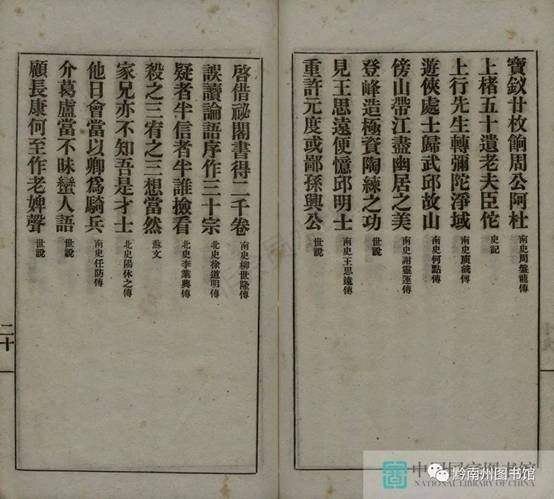 寶釵廿枚餉周公阿杜 南史周盤龍傳
上褚五十遺老夫臣佗 史記
上行先生轉彌陀淨域 南史庾詵傳
遊俠處士歸武邱故山 南史何點傳
傍山帶江盡幽居之美 南史謝靈運傳
登峰造極資陶練之功 世說
見王思遠便憶邱明士 南史王思遠傳
重許元度或鄙孫興公 世說
啓借祕閣書得二千卷 南史柳世隆傳
誤讀論語序作三十宗 北史徐遵明傳
疑者半信者半誰撿看 北史李業興傳
殺之三宥之三想當然 蘇文
家兄亦不知吾是才士 北史陽休之傳
他日會當以卿爲騎兵 南史任昉傳
介葛盧當不昧蠻人語 世說
顧長康何至作老婢聲 世說
二十
中国国家图书馆
NATIONAL LIBRARY OF CHINA
黔南州图书馆